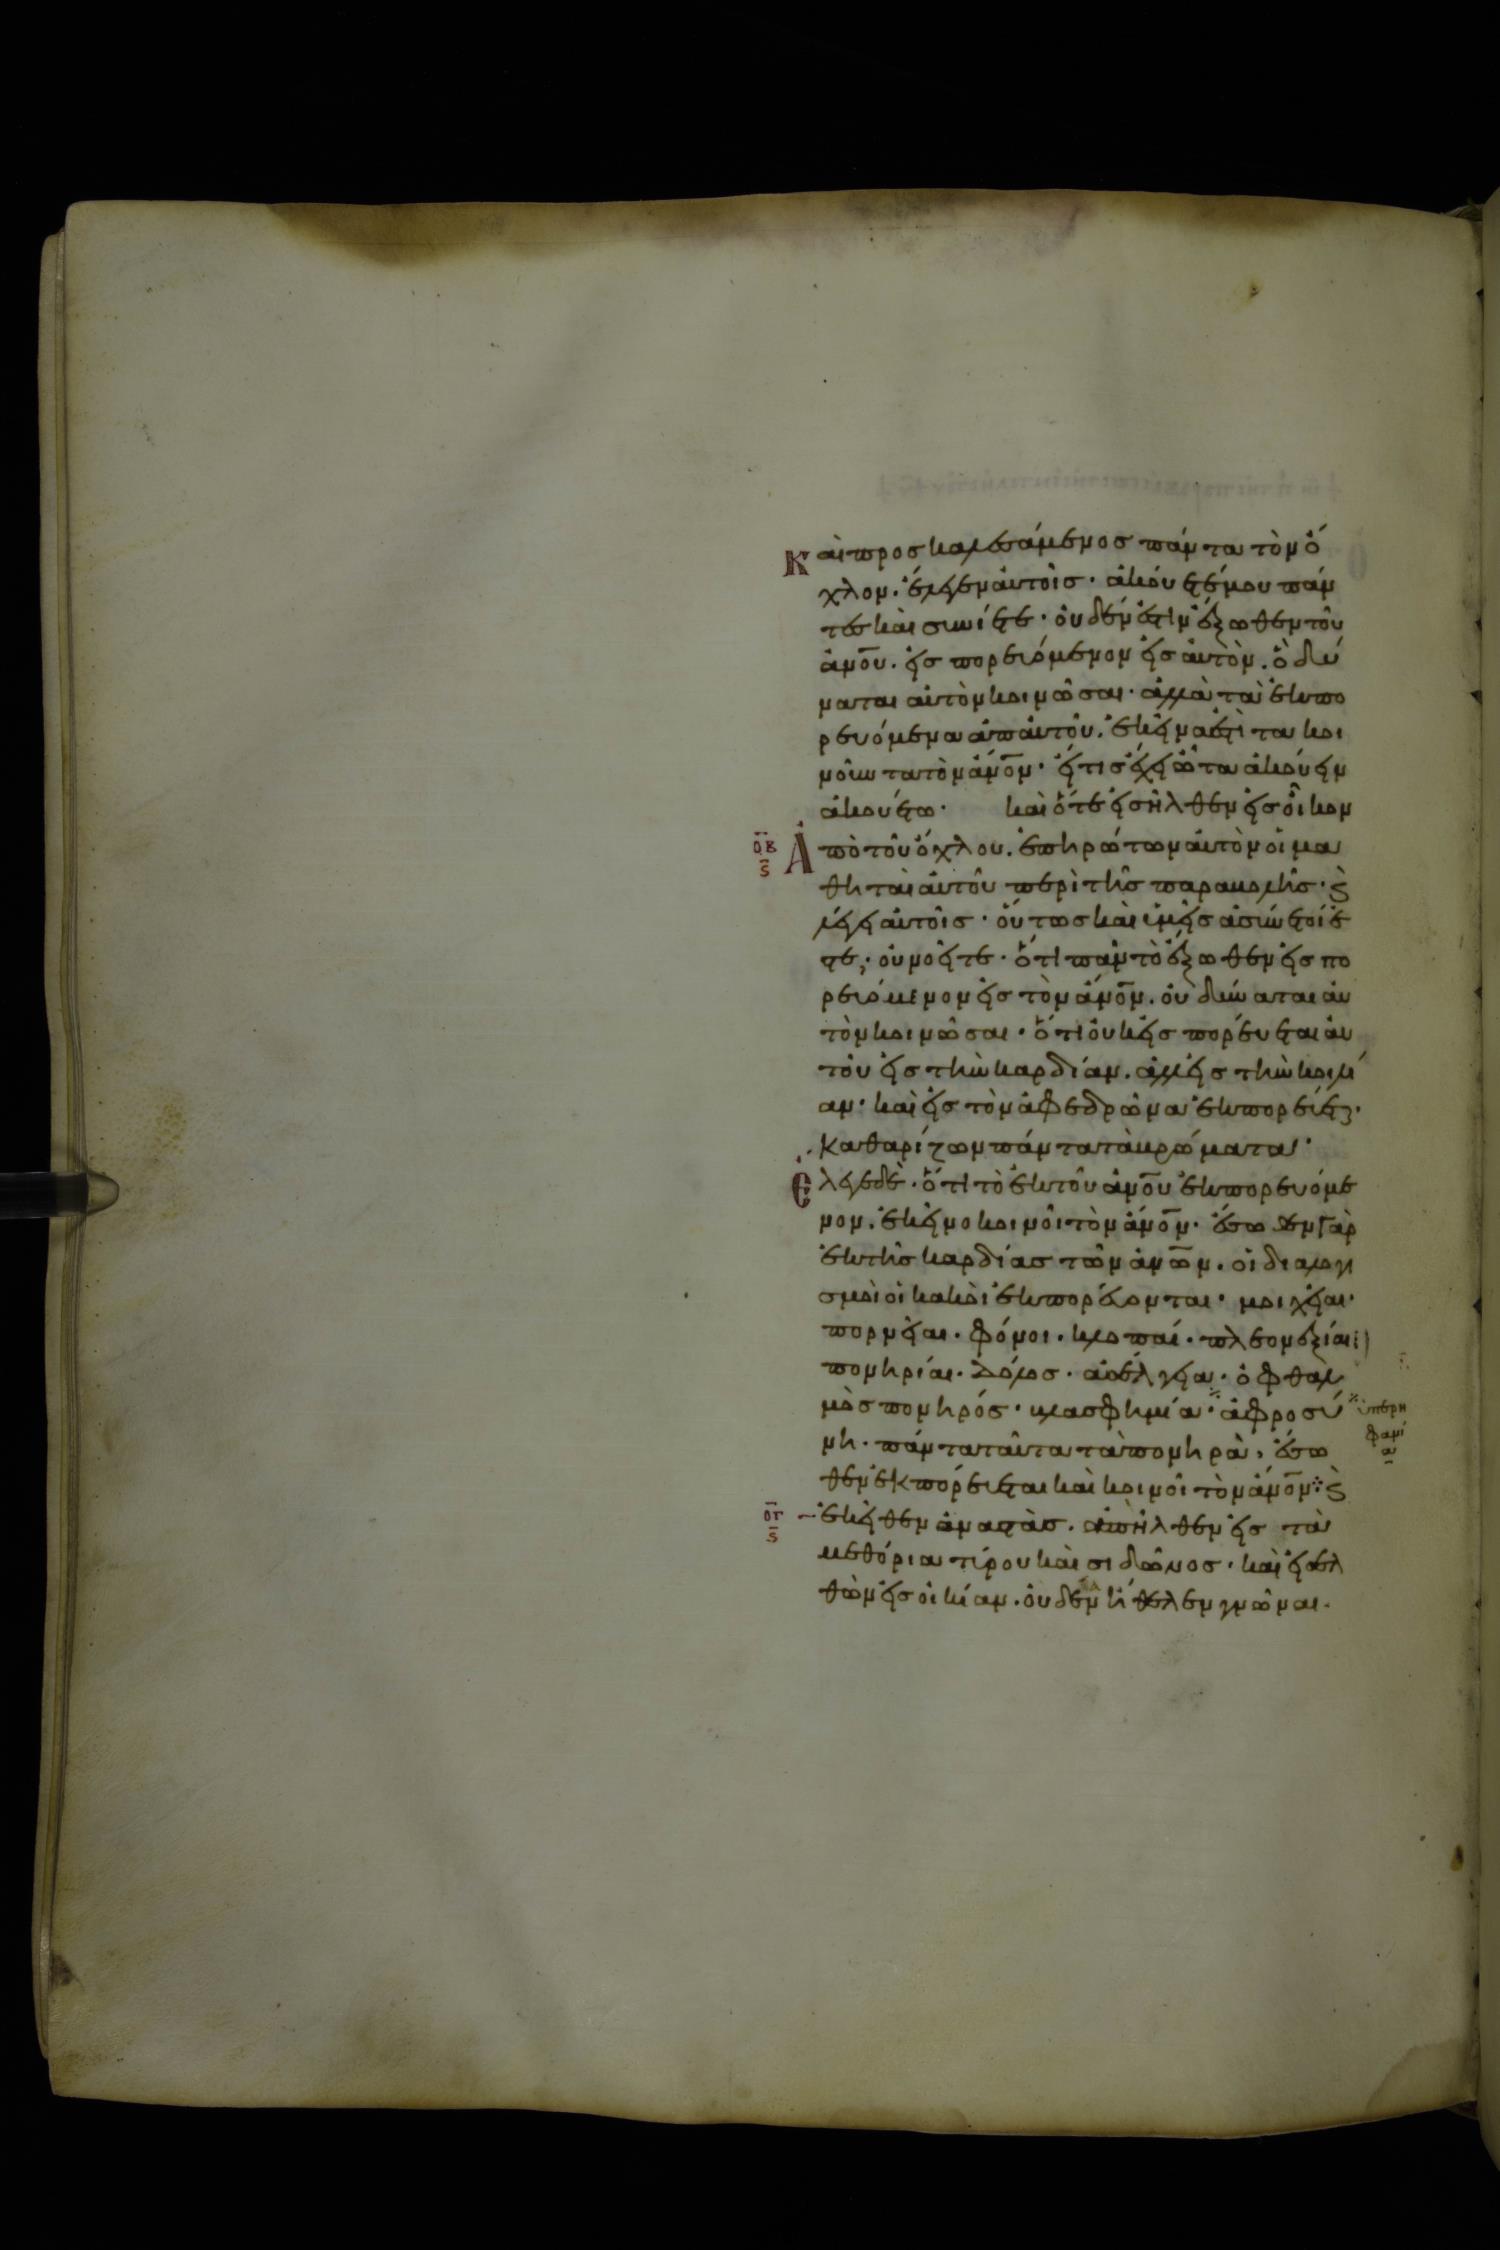 Καὶ προσκαλεσάμενος πάντα τὸν ὄ
χλον. ἔλεγεν ἀυτοῖς· ἀκούετέ μου πάν
τες καὶ συνίετε· ὀυδέν ἐστιν ἔξωθεν τοῦ
ἀν̅ου. εἰσπορευόμενον εἰς ἀυτὸν. ὃ δύ
ναται αὐτὸν κοινῶσαι· ἀλλὰ τὰ ἐκπο
ρευόμενα ἀπ ἀυτοῦ. ἐκεῖνα ἐστὶ τα κοι
νοῦντα τὸν ἄν̅ον· εἴ τις ἔχει ὦτα ἀκούειν
ἀκουέτω· καὶ ὅτε εἰσῆλθεν εἰς οἶκον
ο̅β̅ Ἀπὸ τοῦ ὄχλου. ἐπηρώτων ἀυτὸν οἱ μα
ς̅ θηταὶ ἀυτοῦ περὶ τῆς παραβολῆς· ϗ̀
λέγει ἀυτοῖς· ὅυτως καὶ ὑμεῖς ἀσύνετοί ἐ
στε; ὀυ νοεῖτε· ὅτι πᾶν τὸ ἔξωθεν εἰσπο
ρευόμενον εἰς τὸν ἄν̅ον. ὀυ δύναται ἀυ
τὸν κοινῶσαι· ὅτι ὀυκ εἰσπορέυεται ἀυ
τοῦ εἰς τὴν καρδίαν. ἀλλ εἰς τὴν κοιλί
αν· καὶ εἰς τὸν ἀφεδρῶνα ἐκπορεύεται·
καθαρίζων πάντα τὰ βρώματα·
Ἔλεγε δὲ· ὅτι τὸ ἐκ τοῦ ἀν̅ου ἐκπορευόμε
νον. ἐκεῖνο κοινοῖ τὸν ἄν̅ον· ἔσωθεν γὰρ
ἐκ τῆς καρδίας τῶν ἀν̅ων. οἱ διαλογι
σμοὶ οἱ κακοὶ ἐκπορέυονται· μοιχεῖαι·
πορνεῖαι· φόνοι· κλοπαί· πλεονεξίαι·
πονηρίαι· δόλος· ἀσέλγεια· ὀφθαλ
μὸς πονηρός· βλασφημία· ἀφροσύ ὑπερη
φανί
α
νη· πάντα ταῦτα τὰ πονηρὰ, ἔσω
θεν ἐκπορέυεται καὶ κοινοῖ τὸν ἄν̅ον· ϗ̀
ο̅γ̅ ἐκεῖθεν ἀναστὰς. ἀπῆλθεν εἰς τὰ
ς̅ μεθόρια τύρου καὶ σιδῶνος· καὶ εἰσελ
θὼν εἰς οἰκίαν. ὀυδένα ἤθελεν γνῶναι·